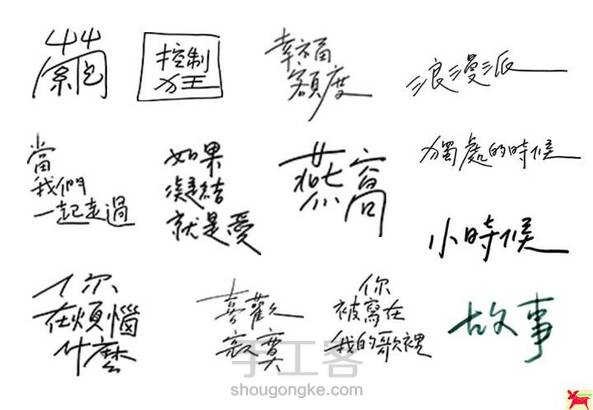 繭
控制
狂
幸福
額度
浪漫派
當
我們
一起走過
如果
凝結
就是愛
燕窩
獨處的時候
小時候
你
在煩惱
什麼
喜歡
寂寞
你
被寫在
我的歌裡
故事
手工客
shougongke.com